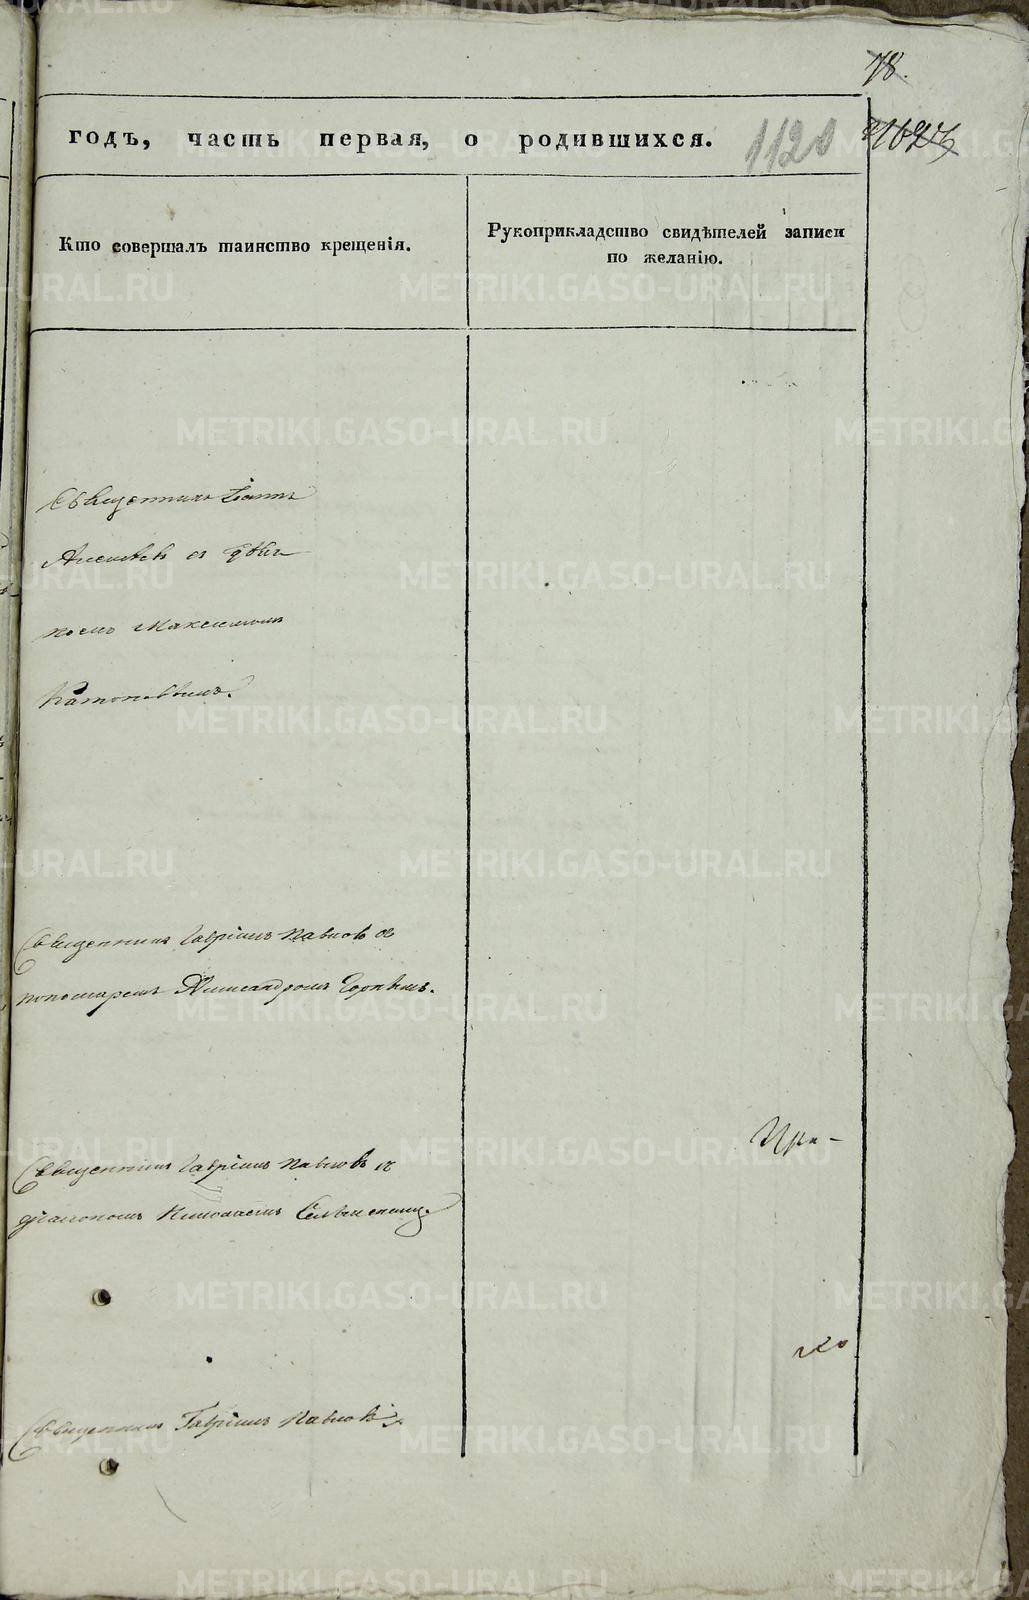 78.
годъ, часть первая, о родившихся.
1120
Кто совершалъ таинство крещенія.
Рукоприкладство свидѣтелей записи
по желанію.
Священникъ Іоаннъ
Алексѣевъ съ
Максимомъ
Священникъ Гавріилъ Павловъ съ
пономаремъ Александромъ
При-
Священникъ Гавріилъ Павловъ съ
діакономъ Николаемъ
Священникъ Гавріилъ Павловъ.
METRIKI.GASO-URAL.RU